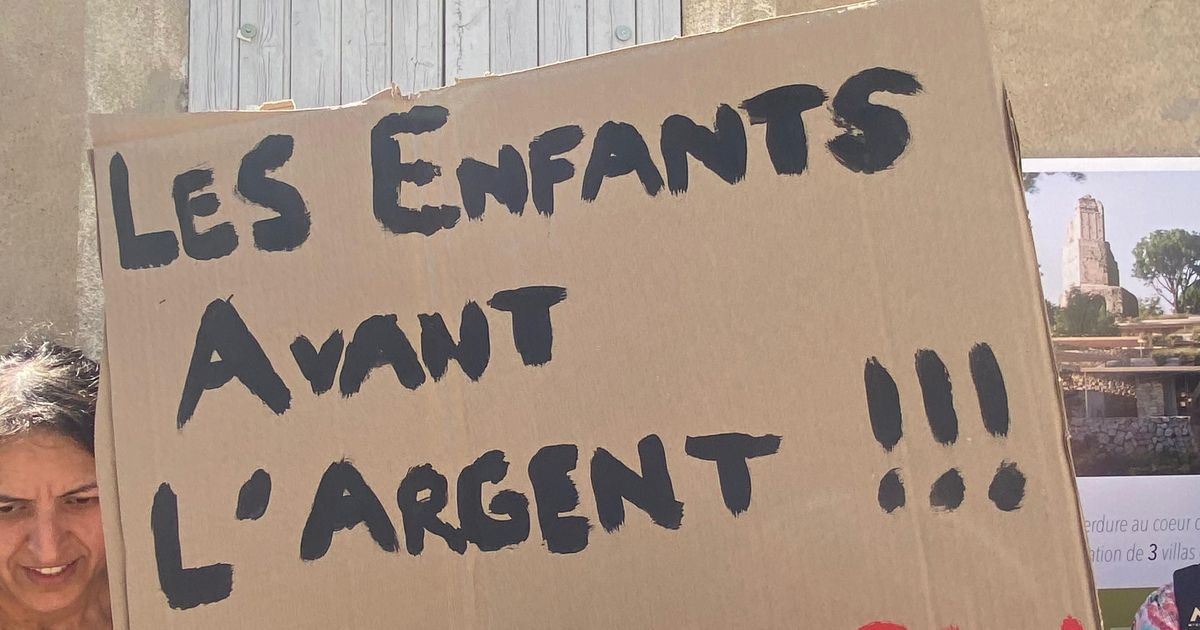 LES ENFANTS
AVANT
L'ARGENT !!!
erdure au coeur
ation de 3 villas